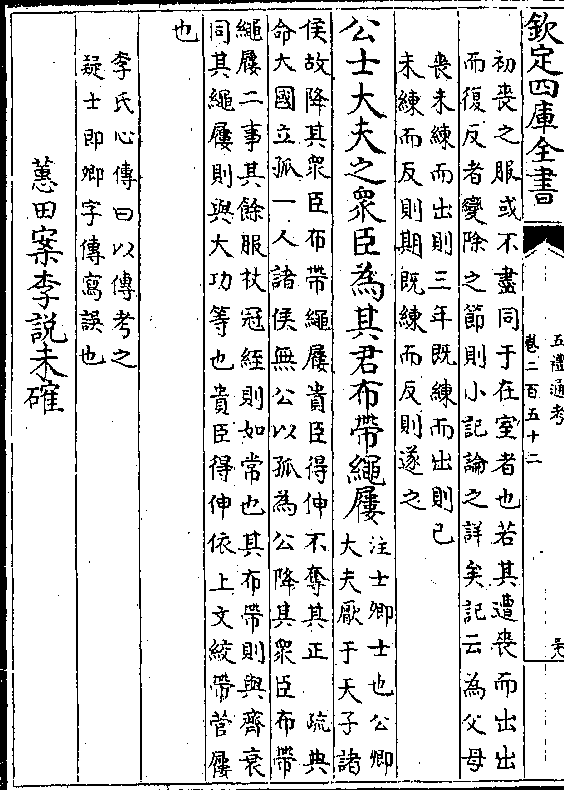 欽定四庫全書
五禮通考
卷二百五十二
初喪之服或不盡同于在室者也若其遭喪而出出
而復反者變除之節則小記論之詳矣記云為父母
喪未練而出則三年既練而出則已
未練而反則期既練而反則遂之
公士大夫之衆臣為其君布帶繩屨
注士卿士也公卿
大夫厭于天子諸
侯故降其衆臣布帶繩屨貴臣得伸不奪其正 疏典
命大國立孤一人諸侯無公以孤為公降其衆臣布帶
繩屨二事其餘服杖冠絰則如常也其布帶則與齊衰
同其繩屨則與大功等也貴臣得伸依上文絞帶菅屨
也
李氏心傳曰以傳考之
疑士即卿字傳寫誤也
蕙田案李說未確